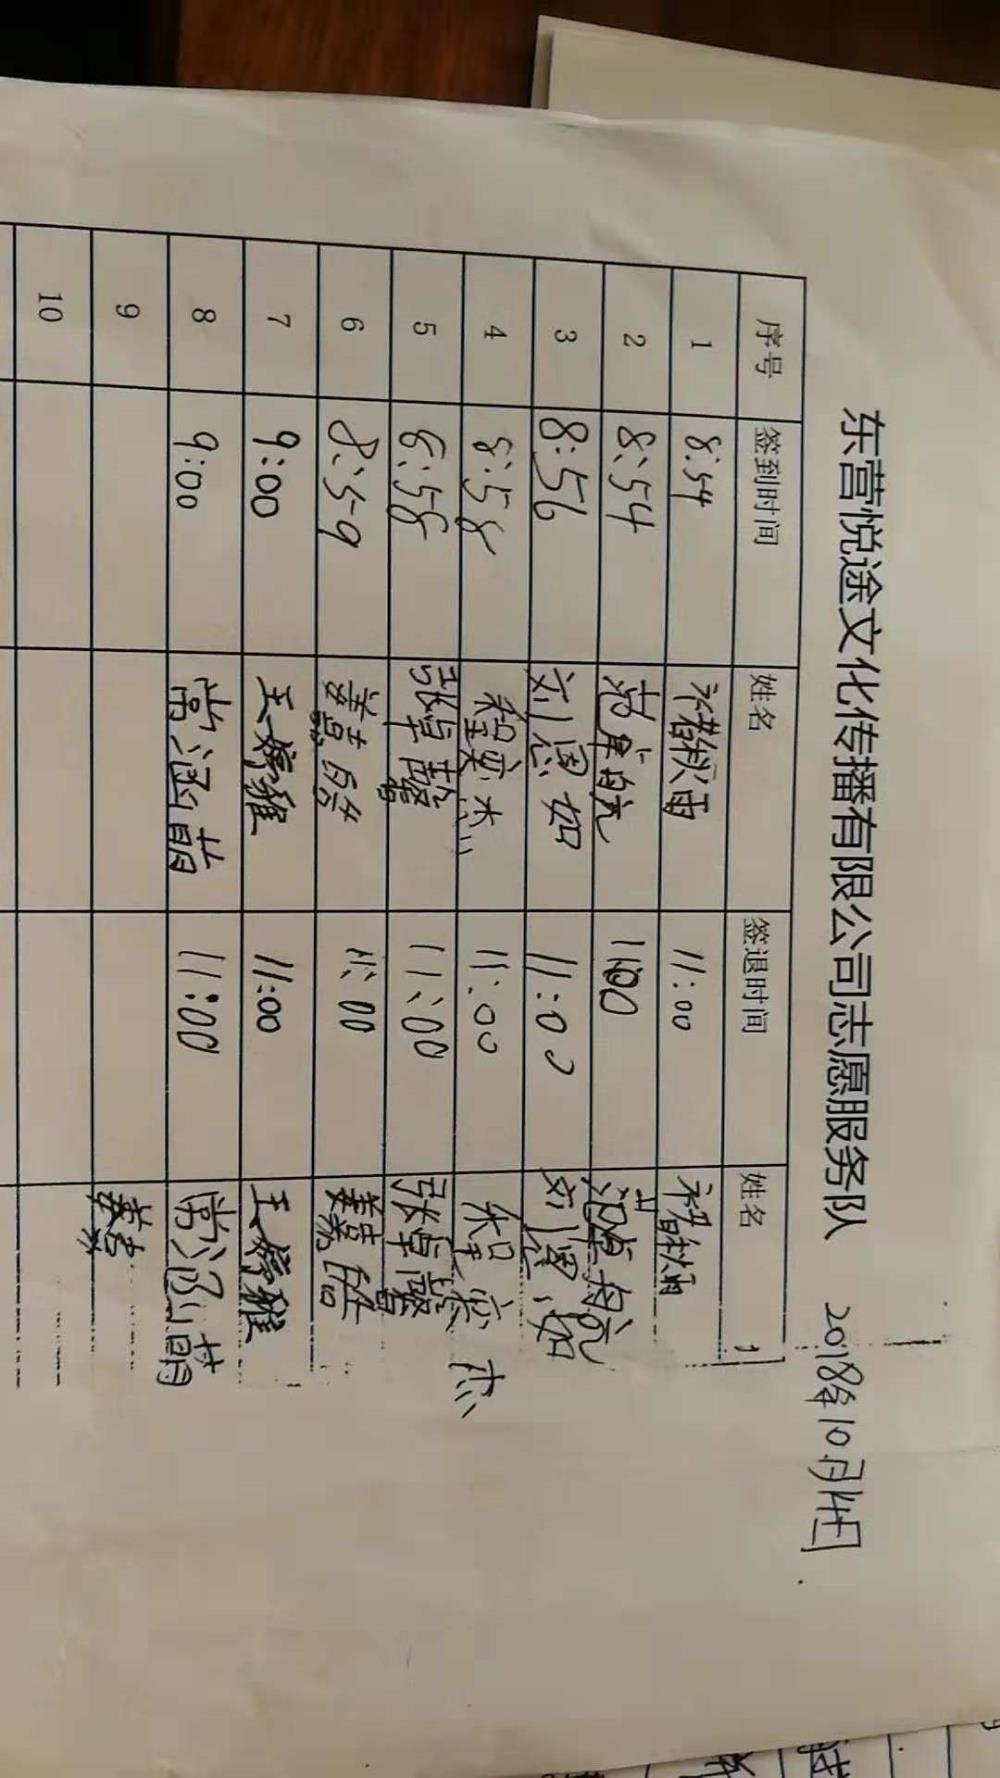 东营悦途文化传播有限公司志愿服务队 2018年10月14日
序号 签到时间 姓名 签退时间 姓名
1 8:54 褚秋雨 11:00 褚秋雨
2 8:54 11:00
3 8:56 刘恩如 11:00 刘恩如
4 8:58 程奕杰 11:00 程奕杰
5 8:58 张卓馨 11:00 张卓馨
6 8:59 11:00
7 9:00 王婷雅 11:00 王婷雅
8 9:00 常涵菁 11:00 常涵菁
9
10